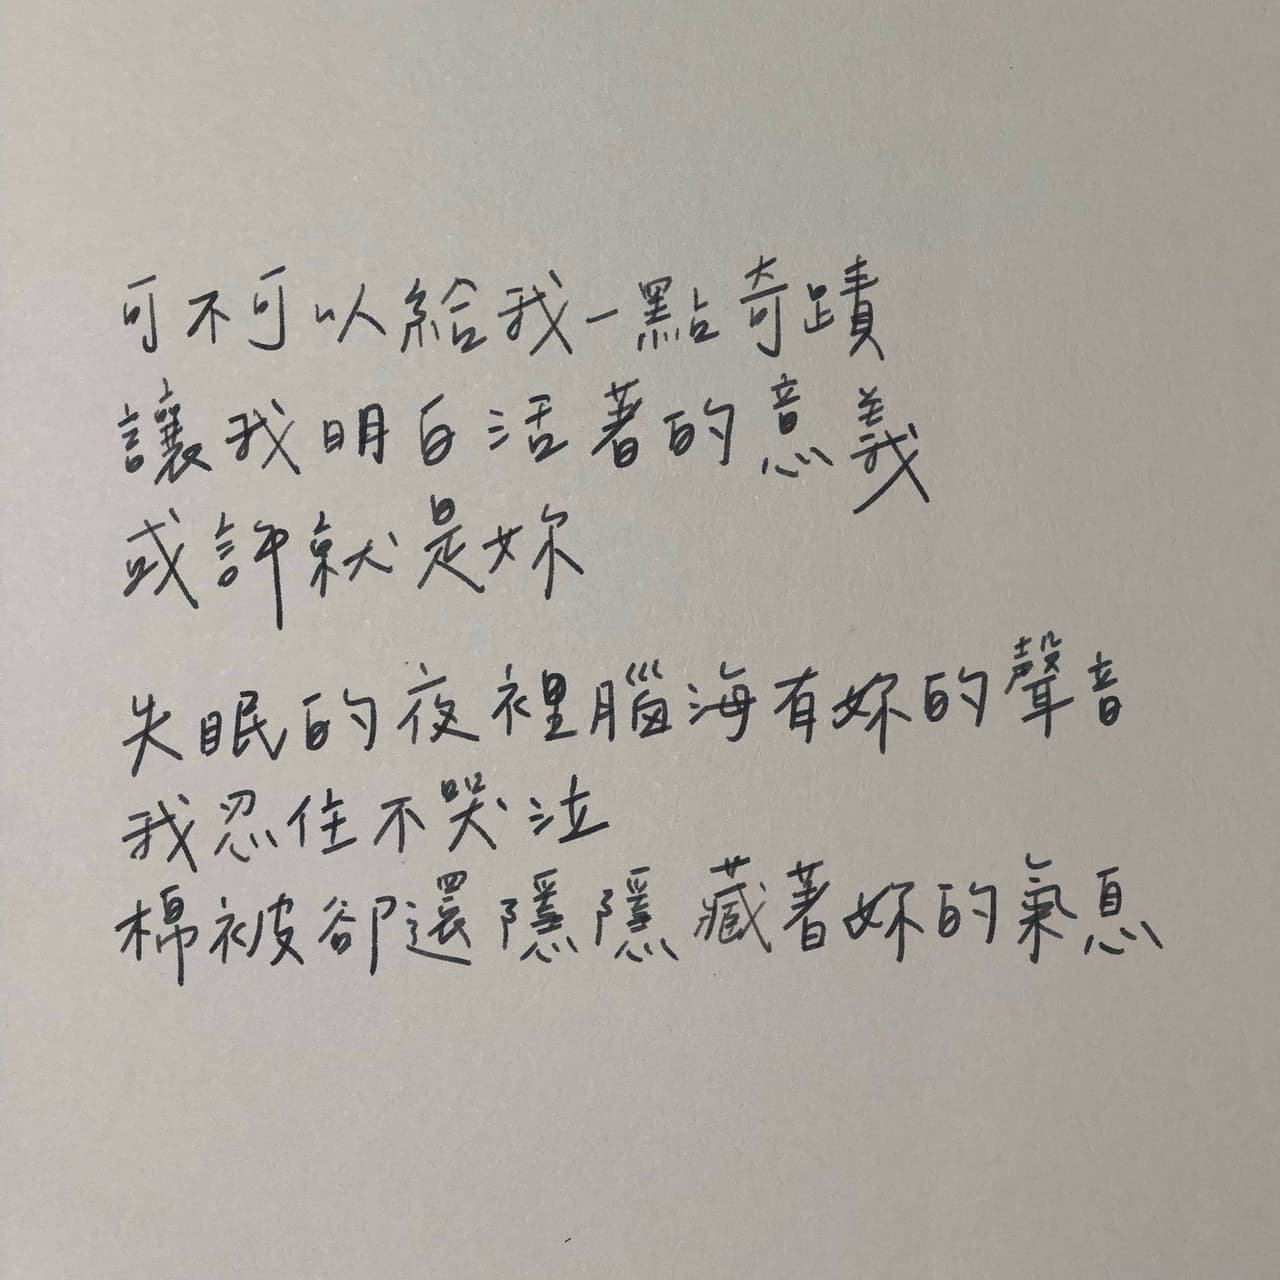 可不可以給我一點奇蹟
讓我明白活著的意義
或許就是妳
失眠的夜裡腦海有妳的聲音
我忍住不哭泣
棉被卻還隱隱藏著妳的氣息